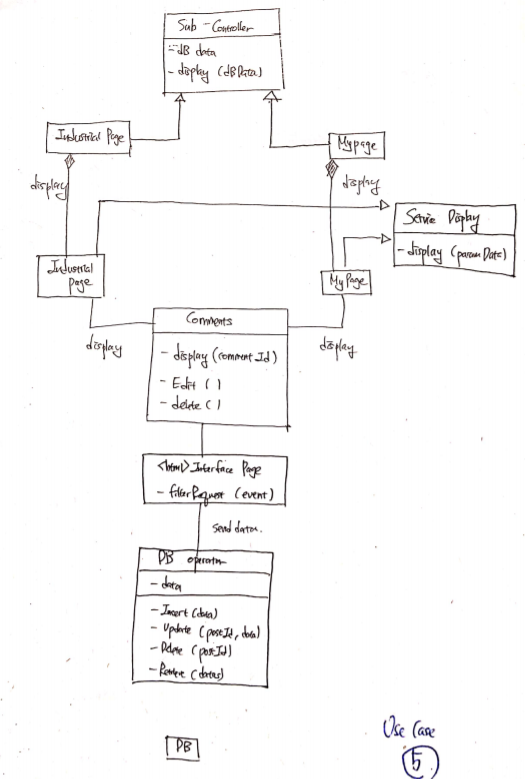 Sub-Controller
- dB data
- display (dBData)
Industrial Page
Mypage
display
display
Service Display
- display (param Data)
Industrial
Page
My Page
display
display
Comments
- display (comment Id)
- Edit ( )
- delete ( )
<html> Interface Page
- filterRequest (event)
send datas.
DB operator
- data
- Insert (data)
- Update (postId, data)
- Delete (postId)
- Retrieve (datas)
DB
Use Case
5